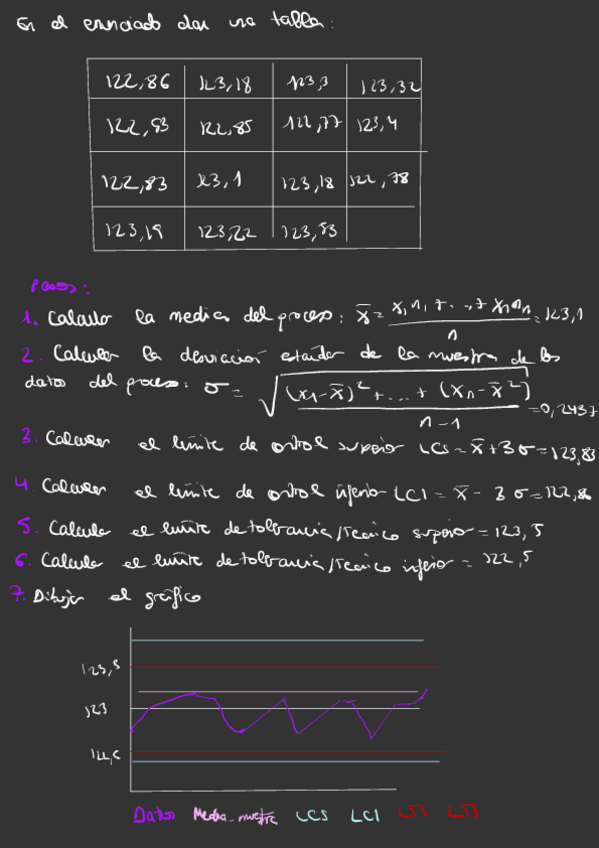 En el enunciado dan una tabla:
122,86 123,18 123,3 123,32
122,93 122,85 122,77 123,4
122,83 123,1 123,18 122,78
123,19 123,22 123,53
Pasos:
1. Calcular la media del proceso: x̄ = x₁n₁ + ... + xₙnₙ / n = 123,1
2. Calcular la desviación estándar de la muestra de los
datos del proceso: σ = √((x₁-x̄)² + ... + (xₙ-x̄²) / n-1) = 0,2437
3. Calcular el límite de control superior LCS = x̄ + 3σ = 123,83
4. Calcular el límite de control inferior LCI = x̄ - 3σ = 122,86
5. Calcular el límite de tolerancia/técnico superior = 123,5
6. Calcular el límite de tolerancia/técnico inferior = 122,5
7. Dibujar el gráfico
123,5
123
122,5
Datos Media muestra LCS LCI LTS LTI